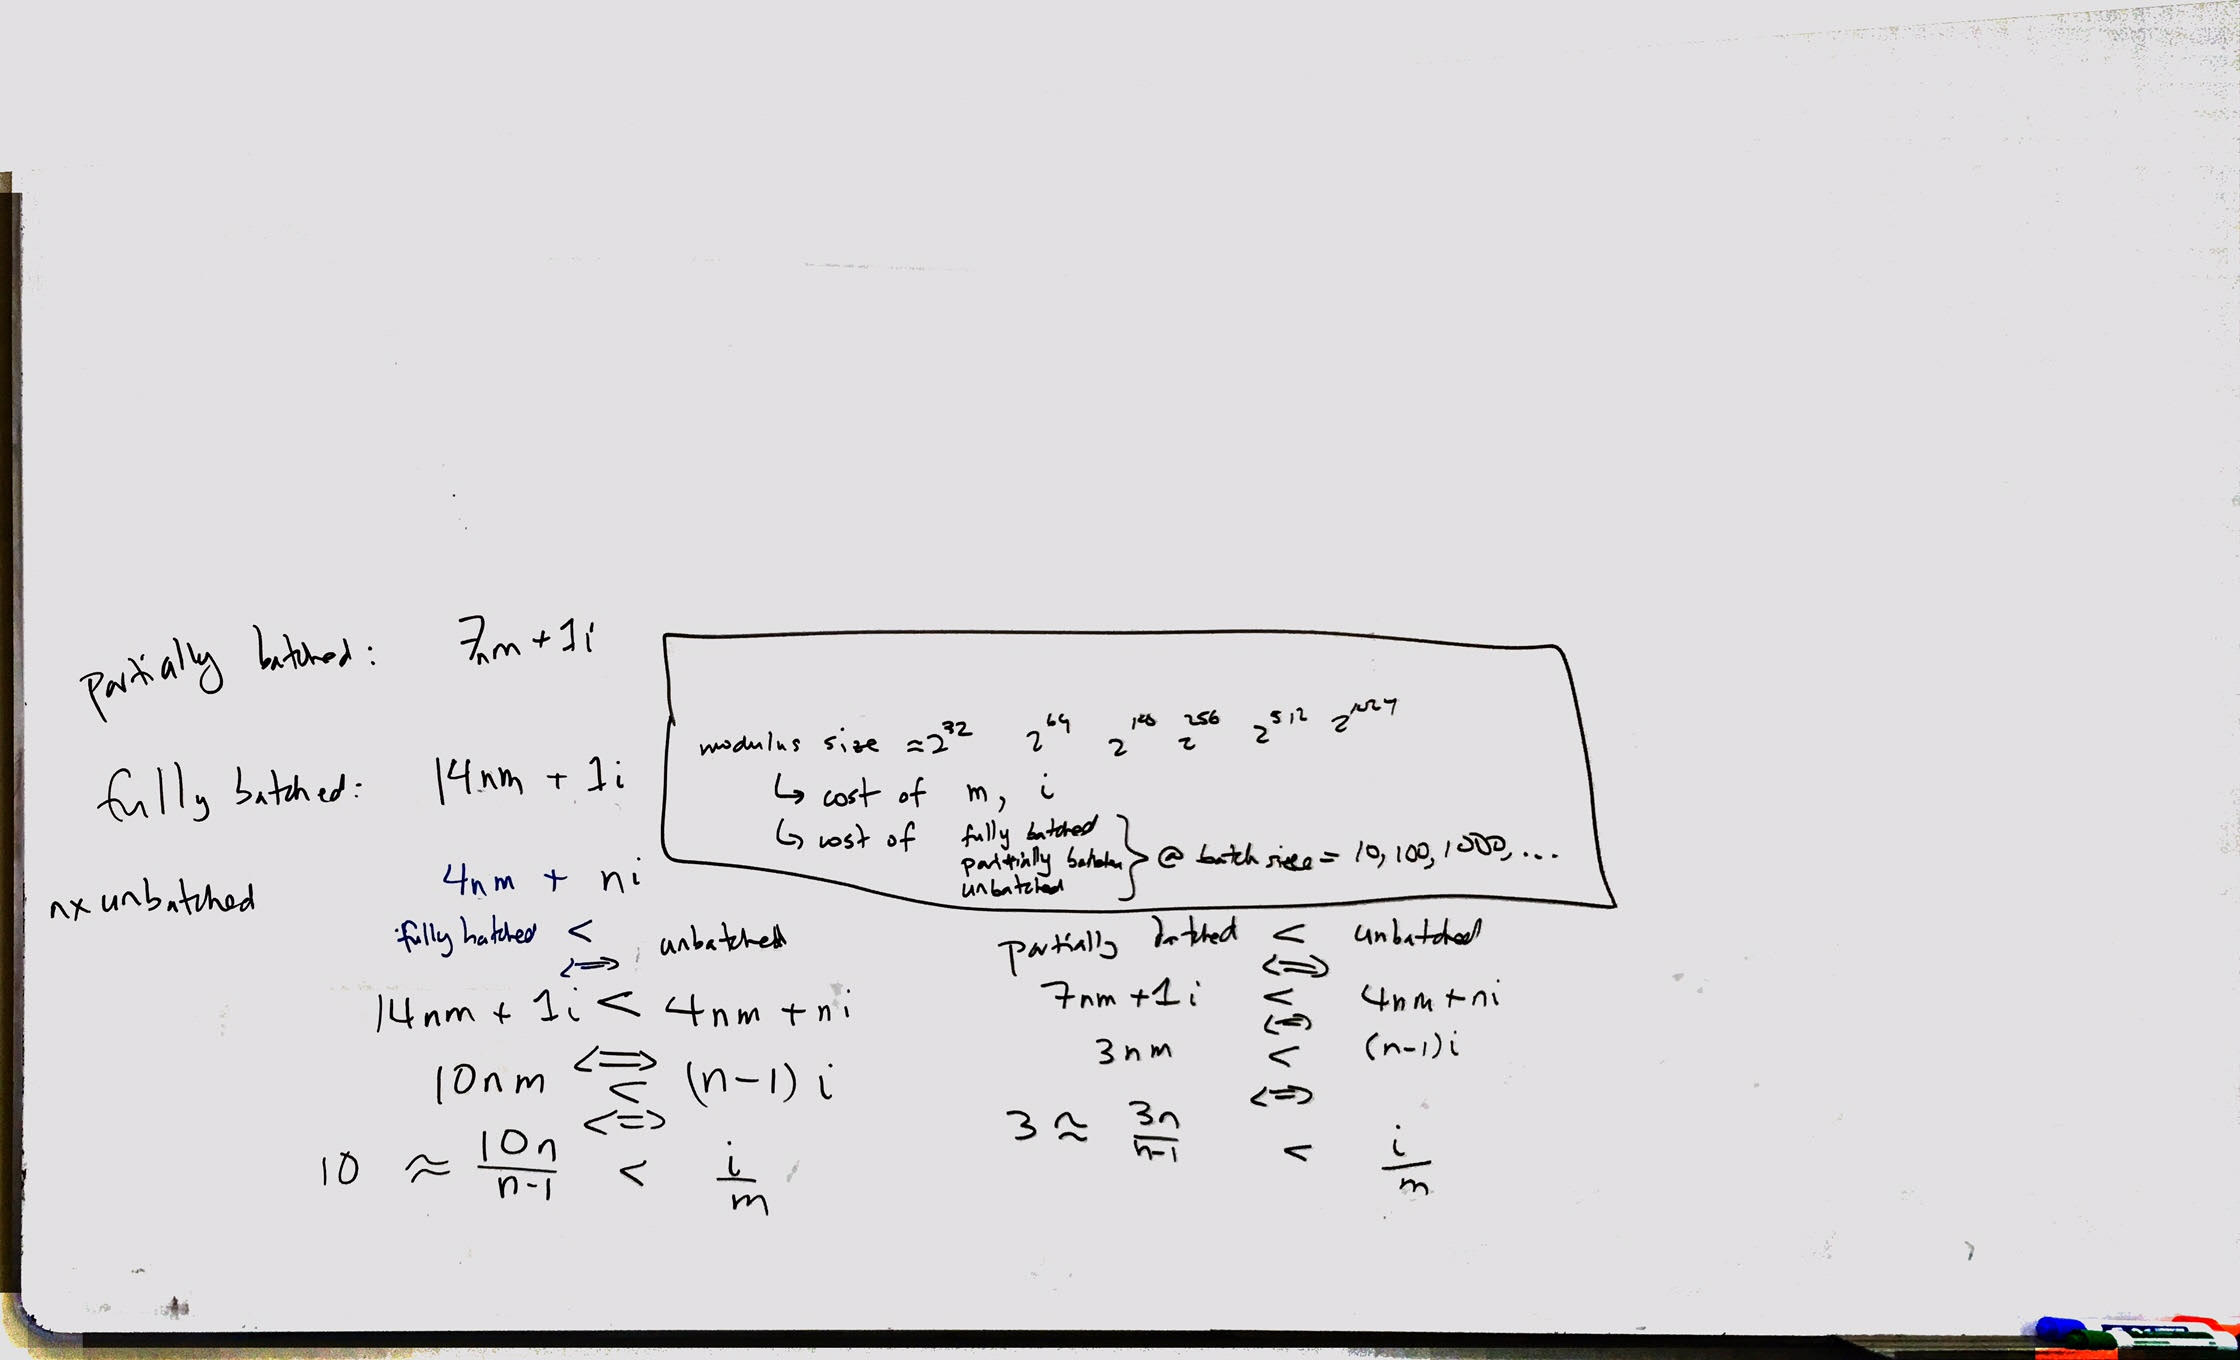 partially batched: 7nm + 1i
fully batched: 14nm + 1i
nx unbatched 4nm + ni
modulus size ≈ 2^32 2^64 2^128 2^256 2^512 2^1024
↳ cost of m, i
↳ cost of fully batched
partially batched
unbatched
} @ batch size = 10, 100, 1000, ...
fully batched < unbatched
<=>
14nm + 1i < 4nm + ni
<=>
10nm < (n-1) i
<=>
10 ≈ 10n/n-1 < i/m
partially batched < unbatched
<=>
7nm + 1i < 4nm + ni
<=>
3nm < (n-1) i
<=>
3 ≈ 3n/n-1 < i/m